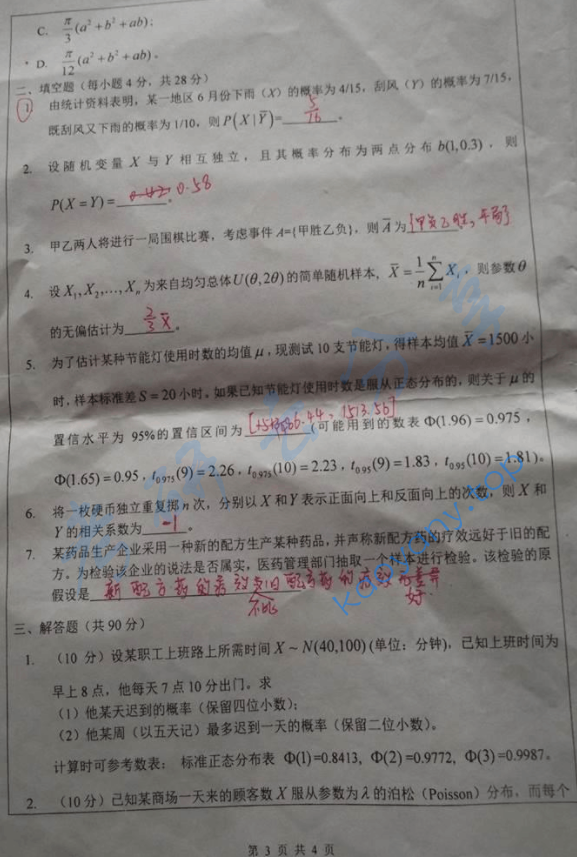 C. $\frac{\pi}{3}(a^2+b^2+ab)$；
D. $\frac{\pi}{12}(a^2+b^2+ab)$。
二、填空题（每小题 4 分，共 28 分）
① 由统计资料表明，某一地区 6 月份下雨（X）的概率为 4/15，刮风（Y）的概率为 7/15，
既刮风又下雨的概率为 1/10，则 $P(X|\overline{Y})$= $\frac{5}{16}$ 。
2. 设随机变量 X 与 Y 相互独立，且其概率分布为两点分布 b(1,0.3)，则
P(X=Y)= 0.42 0.58 。
3. 甲乙两人将进行一局围棋比赛，考虑事件 A={甲胜乙负}，则 $\overline{A}$ 为 {甲负乙胜，平局}
4. 设 $X_1,X_2,...,X_n$ 为来自均匀总体 $U(\theta,2\theta)$ 的简单随机样本，$\overline{X}=\frac{1}{n}\sum_{i=1}^{n}X_i$，则参数 $\theta$
的无偏估计为 $\frac{2}{3}\overline{X}$ 。
5. 为了估计某种节能灯使用时数的均值 $\mu$，现测试 10 支节能灯，得样本均值 $\overline{X}=1500$ 小
时，样本标准差 S=20 小时。如果已知节能灯使用时数是服从正态分布的，则关于 $\mu$ 的
置信水平为 95%的置信区间为 86.44，1513.56] （可能用到的数表 Φ(1.96)=0.975，
Φ(1.65)=0.95，$t_{0.975}(9)=2.26$，$t_{0.975}(10)=2.23$，$t_{0.95}(9)=1.83$，$t_{0.95}(10)=1.81$）。
6. 将一枚硬币独立重复掷 n 次，分别以 X 和 Y 表示正面向上和反面向上的次数，则 X 和
Y 的相关系数为 -1 。
7. 某药品生产企业采用一种新的配方生产某种药品，并声称新配方药的疗效远好于旧的配
方。为检验该企业的说法是否属实，医药管理部门抽取一个样本进行检验。该检验的原
假设是 新配方药的疗效 旧配方药的疗效
不比 好
三、解答题（共 90 分）
1. （10 分）设某职工上班路上所需时间 X ~ N(40,100) (单位：分钟)，已知上班时间为
早上 8 点，他每天 7 点 10 分出门。求
（1）他某天迟到的概率（保留四位小数）；
（2）他某周（以五天记）最多迟到一天的概率（保留二位小数）。
计算时可参考数表： 标准正态分布表 Φ(1)=0.8413, Φ(2)=0.9772, Φ(3)=0.9987。
2. （10 分）已知某商场一天来的顾客数 X 服从参数为 λ 的泊松（Poisson）分布，而每个
第 3 页 共 4 页
kaoyany.top